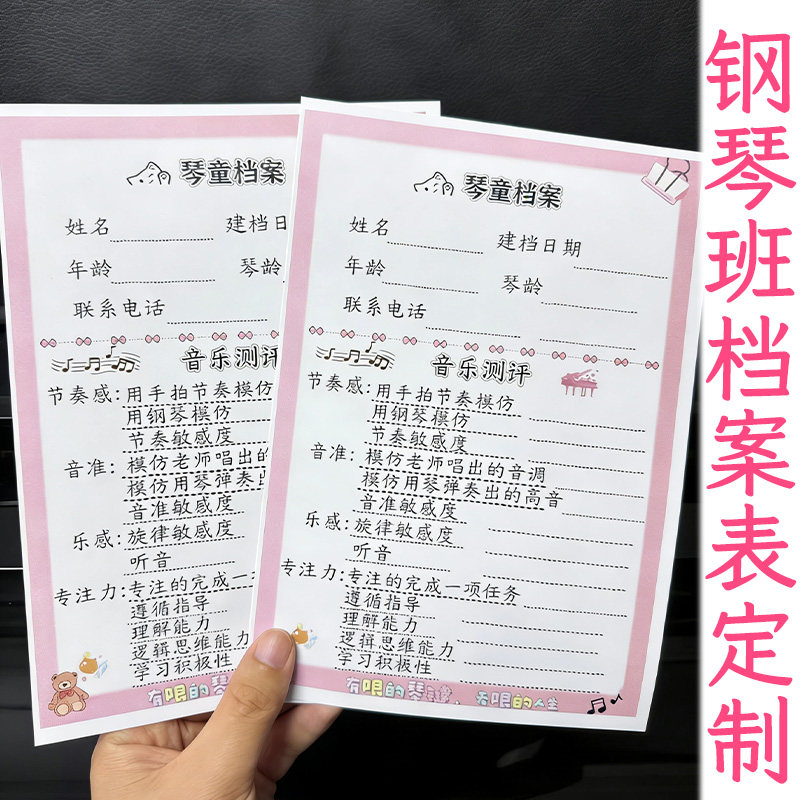 琴童档案
姓名 建档日
年龄 琴龄
联系电话
音乐测评
节奏感:用手拍节奏模仿
用钢琴模仿
节奏敏感度
音准:模仿老师唱出的
模仿用琴弹奏出
音准敏感度
乐感:旋律敏感度
听音
专注力:专注的完成一
遵循指导
理解能力
逻辑思维能力
学习积极性
有限的琴
琴童档案
姓名 建档日期
年龄 琴龄
联系电话
音乐测评
节奏感:用手拍节奏模仿
用钢琴模仿
节奏敏感度
音准:模仿老师唱出的音调
模仿用琴弹奏出的高音
音准敏感度
乐感:旋律敏感度
听音
专注力:专注的完成一项任务
遵循指导
理解能力
逻辑思维能力
学习积极性
有限的琴键,无限的人生
钢琴班档案表定制